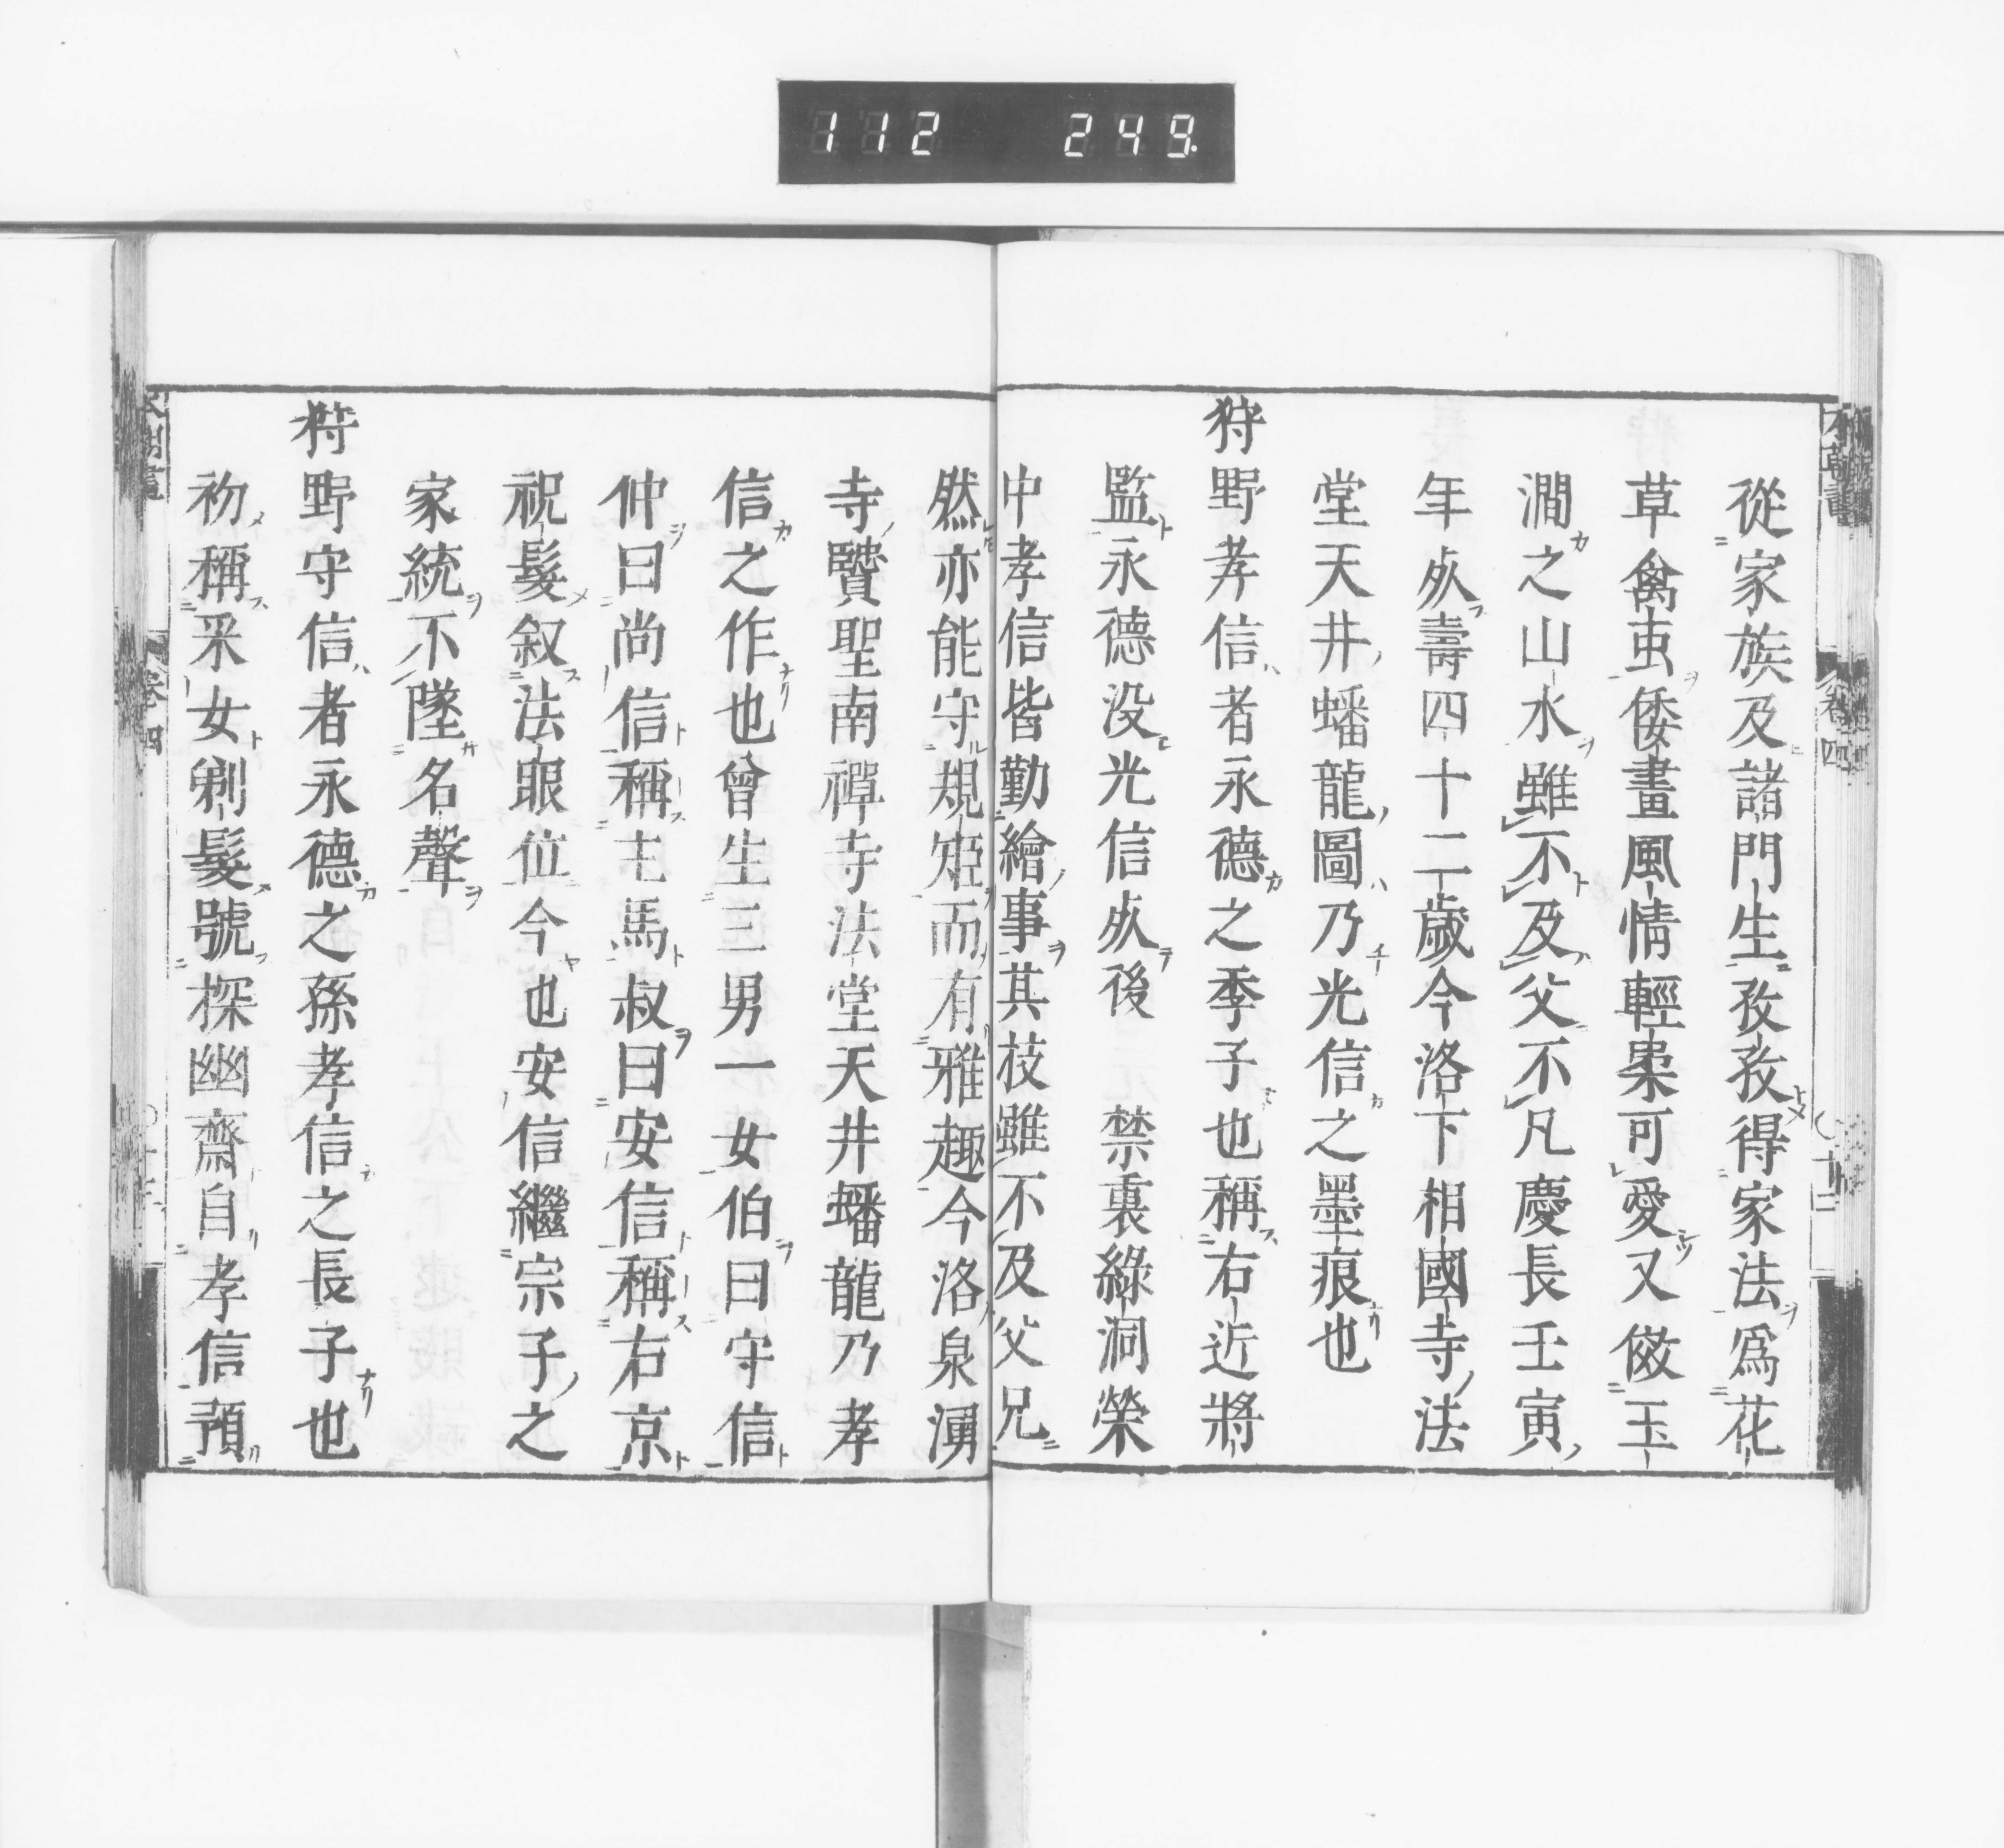 112 249
從家族及諸門生孜孜得家法爲花
草禽䖝倭畫風情輕柔可愛又倣玉
澗之山水雖不及父不凡慶長壬寅
年死壽四十二歲今洛下相國寺法
堂天井蟠龍圖乃光信之墨痕也
狩野孝信者永德之季子也稱右近將
監永德没光信死後 禁裏綠洞榮
中孝信皆勤繪事其技雖不及父兄
然亦能守規矩而有雅趣今洛泉湧
寺贒聖南禪寺法堂天井蟠龍乃孝
信之作也曾生三男一女伯曰守信
仲曰尚信稱主馬叔曰安信稱右京
祝髮叙法眼位今也安信繼宗子之
家統不墜名聲
狩野守信者永德之孫孝信之長子也
初稱采女剃髮號探幽齋自孝信預
卷四
卷四